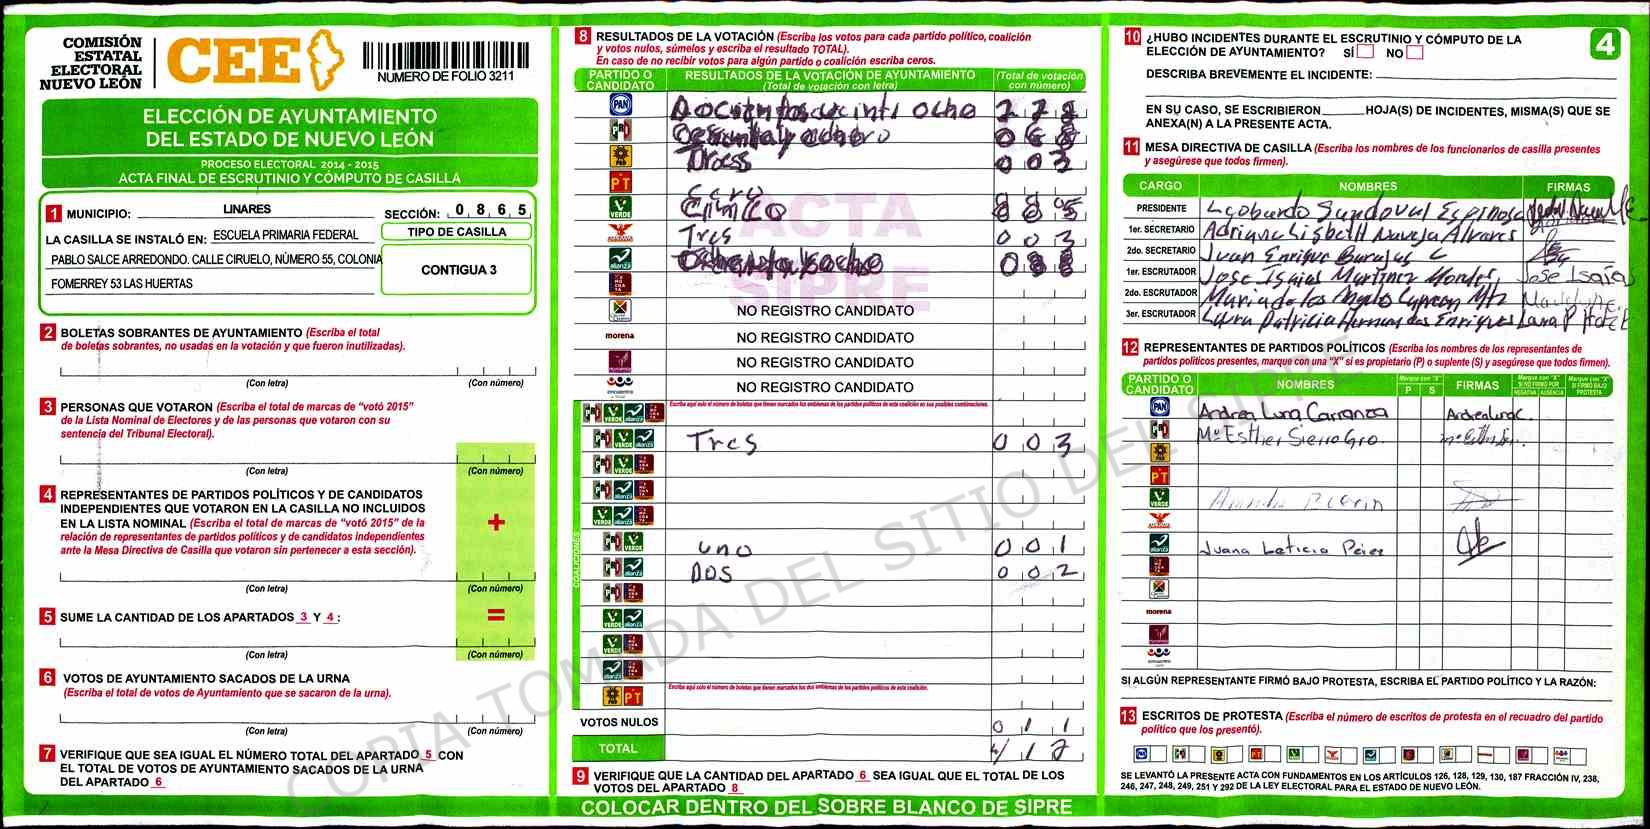 COMISIÓN
ESTATAL
ELECTORAL
NUEVO LEÓN
CEE
NUMERO DE FOLIO 3211
ELECCIÓN DE AYUNTAMIENTO
DEL ESTADO DE NUEVO LEÓN
PROCESO ELECTORAL 2014 - 2015
ACTA FINAL DE ESCRUTINIO Y CÓMPUTO DE CASILLA
1 MUNICIPIO: LINARES SECCIÓN: 0 8 6 5
LA CASILLA SE INSTALÓ EN: ESCUELA PRIMARIA FEDERAL
PABLO SALCE ARREDONDO. CALLE CIRUELO, NÚMERO 55, COLONIA
FOMERREY 53 LAS HUERTAS
TIPO DE CASILLA
CONTIGUA 3
2 BOLETAS SOBRANTES DE AYUNTAMIENTO (Escriba el total
de boletas sobrantes, no usadas en la votación y que fueron inutilizadas).
(Con letra) (Con número)
3 PERSONAS QUE VOTARON (Escriba el total de marcas de "votó 2015"
de la Lista Nominal de Electores y de las personas que votaron con su
sentencia del Tribunal Electoral).
(Con letra) (Con número)
4 REPRESENTANTES DE PARTIDOS POLÍTICOS Y DE CANDIDATOS
INDEPENDIENTES QUE VOTARON EN LA CASILLA NO INCLUIDOS
EN LA LISTA NOMINAL (Escriba el total de marcas de "votó 2015" de la
relación de representantes de partidos políticos y de candidatos independientes
ante la Mesa Directiva de Casilla que votaron sin pertenecer a esta sección).
+
(Con letra) (Con número)
5 SUME LA CANTIDAD DE LOS APARTADOS 3 Y 4 :
=
(Con letra) (Con número)
6 VOTOS DE AYUNTAMIENTO SACADOS DE LA URNA
(Escriba el total de votos de Ayuntamiento que se sacaron de la urna).
(Con letra) (Con número)
7 VERIFIQUE QUE SEA IGUAL EL NÚMERO TOTAL DEL APARTADO 5 CON
EL TOTAL DE VOTOS DE AYUNTAMIENTO SACADOS DE LA URNA
DEL APARTADO 6
8 RESULTADOS DE LA VOTACIÓN (Escriba los votos para cada partido político, coalición
y votos nulos, súmelos y escriba el resultado TOTAL).
En caso de no recibir votos para algún partido o coalición escriba ceros.
PARTIDO O
CANDIDATO
RESULTADOS DE LA VOTACIÓN DE AYUNTAMIENTO
(Total de votación con letra)
(Total de votación
con número)
PAN ocho
PRI
PRD Tress 0 0 3
PT cero
VERDE CINCO
Tres 0 0 3
alianza
ACTA
SIPRE
NO REGISTRO CANDIDATO
morena NO REGISTRO CANDIDATO
NO REGISTRO CANDIDATO
NO REGISTRO CANDIDATO
COALICIONES
Escriba aquí solo el número de boletas que tienen marcados los emblemas de los partidos políticos de esta coalición en sus posibles combinaciones.
Tres 0 0 3
uno 0 0 1
DOS 0 0 2
Escriba aquí solo el número de boletas que tienen marcados los dos emblemas de los partidos políticos de esta coalición.
VOTOS NULOS 0 1 1
TOTAL 4 1 2
9 VERIFIQUE QUE LA CANTIDAD DEL APARTADO 6 SEA IGUAL QUE EL TOTAL DE LOS
VOTOS DEL APARTADO 8
COLOCAR DENTRO DEL SOBRE BLANCO DE SIPRE
10 ¿HUBO INCIDENTES DURANTE EL ESCRUTINIO Y CÓMPUTO DE LA
ELECCIÓN DE AYUNTAMIENTO? SÍ NO
4
DESCRIBA BREVEMENTE EL INCIDENTE:
EN SU CASO, SE ESCRIBIERON HOJA(S) DE INCIDENTES, MISMA(S) QUE SE
ANEXA(N) A LA PRESENTE ACTA.
11 MESA DIRECTIVA DE CASILLA (Escriba los nombres de los funcionarios de casilla presentes
y asegúrese que todos firmen).
CARGO NOMBRES FIRMAS
PRESIDENTE Leobardo Sandoval Espinosa
1er. SECRETARIO Adriana Lisbett Alvares
2do. SECRETARIO Juan Enrique Barajas C
1er. ESCRUTADOR Jose Isaias Martinez Jose Isaias
2do. ESCRUTADOR Maria de los Angeles
3er. ESCRUTADOR Laura Patricia Enriques
12 REPRESENTANTES DE PARTIDOS POLÍTICOS (Escriba los nombres de los representantes de
partidos políticos presentes, marque con una "X" si es propietario (P) o suplente (S) y asegúrese que todos firmen).
PARTIDO O
CANDIDATO
NOMBRES
Marque con "X"
P S
FIRMAS
Marque con "X"
SI NO FIRMÓ POR
NEGATIVA AUSENCIA
Marque con "X"
SI FIRMÓ BAJO
PROTESTA
PAN Andrea Luna Carranza Andrea Luna C
Ma Esther Sierra Gro.
PT
VERDE
alianza Juana Leticia Pérez
morena
SI ALGÚN REPRESENTANTE FIRMÓ BAJO PROTESTA, ESCRIBA EL PARTIDO POLÍTICO Y LA RAZÓN:
13 ESCRITOS DE PROTESTA (Escriba el número de escritos de protesta en el recuadro del partido
político que los presentó).
SE LEVANTÓ LA PRESENTE ACTA CON FUNDAMENTOS EN LOS ARTÍCULOS 126, 128, 129, 130, 187 FRACCIÓN IV, 238,
246, 247, 248, 249, 251 Y 292 DE LA LEY ELECTORAL PARA EL ESTADO DE NUEVO LEÓN.
COPIA TOMADA DEL SITIO DEL SIPRE